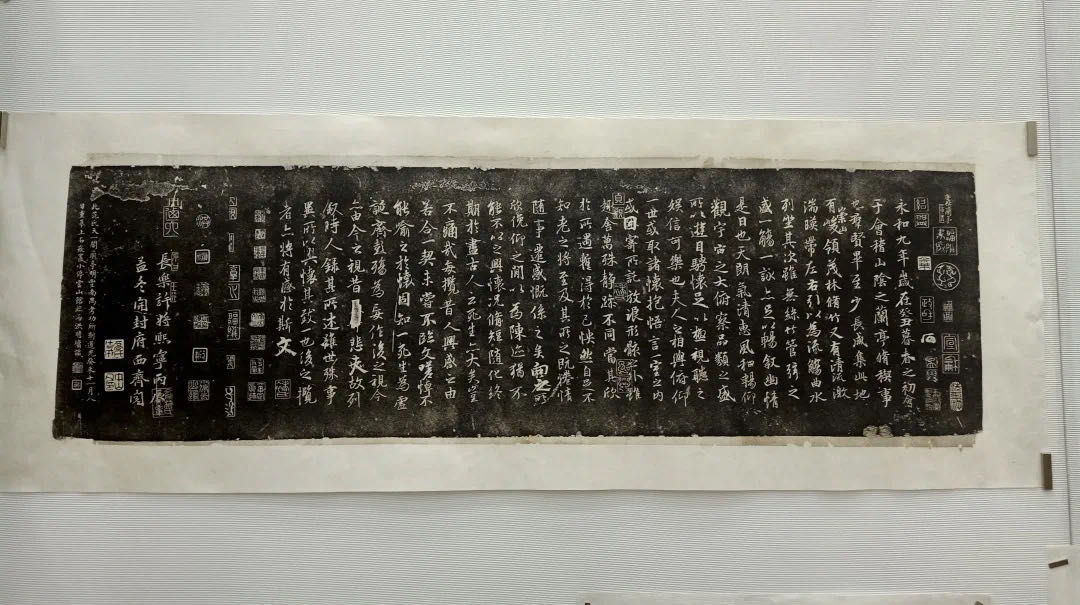 永和九年歲在癸丑暮春之初會
于會稽山陰之蘭亭脩稧事
也羣賢畢至少長咸集此地
有崇山峻領茂林脩竹又有清流激
湍暎帶左右引以為流觴曲水
列坐其次雖無絲竹管弦之
盛一觴一詠亦足以暢叙幽情
是日也天朗氣清惠風和暢仰
觀宇宙之大俯察品類之盛
所以遊目騁懷足以極視聽之
娛信可樂也夫人之相與俯仰
一世或取諸懷抱悟言一室之內
或因寄所託放浪形骸之外雖
趣舍萬殊靜躁不同當其欣
於所遇蹔得於己怏然自足不
知老之將至及其所之既惓情
隨事遷感慨係之矣向之所
欣俛仰之閒以為陳迹猶不
能不以之興懷況脩短隨化終
期於盡古人云死生亦大矣豈
不痛哉每攬昔人興感之由
若合一契未嘗不臨文嗟悼不
能喻之於懷固知一死生為虛
誕齊彭殤為妄作後之視今
亦由今之視昔悲夫故列
叙時人錄其所述雖世殊事
異所以興懷其致一也後之攬
者亦將有感於斯文
長樂許將熙寧丙辰
孟冬開封府西齋閱
此范氏天一閣藏豐南禺考功所刻道光癸未十一月八
日重摹上石洪頤煊識